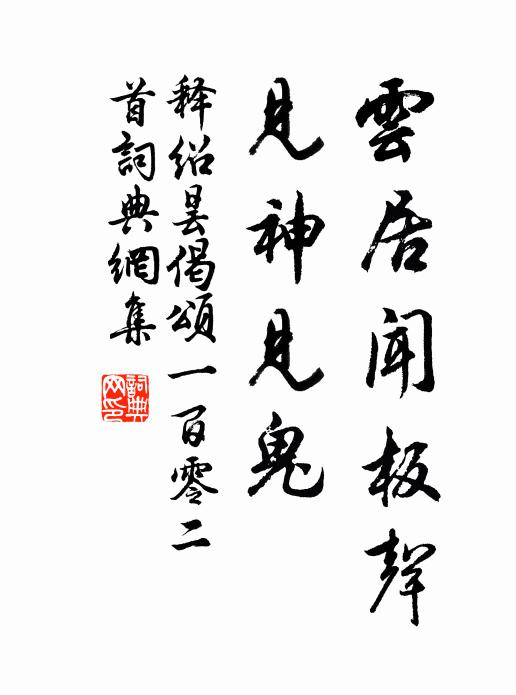 雲居聞板聲
見神見鬼
释紹曇偈頌一百零二
首詞典網集
詞典網印